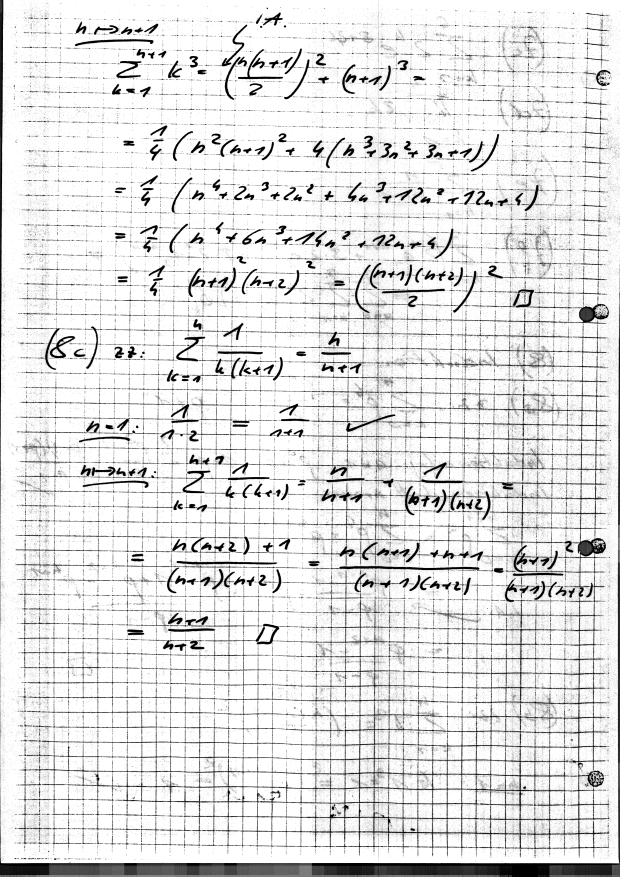 I.A.
n ↦ n+1
∑_{k=1}^{n+1} k³ = (n(n+1)/2)² + (n+1)³ =
= 1/4 (n²(n+1)² + 4(n³+3n²+3n+1))
= 1/4 (n⁴+2n³+2n² + 4n³+12n²+12n+4)
= 1/4 (n⁴+6n³+14n²+12n+4)
= 1/4 (n+1)² (n+2)² = ((n+1)(n+2)/2)² □
(8c) zz: ∑_{k=1}^{n} 1/(k(k+1)) = n/(n+1)
n=1: 1/(1·2) = 1/(1+1) ✓
n↦n+1: ∑_{k=1}^{n+1} 1/(k(k+1)) = n/(n+1) + 1/((n+1)(n+2)) =
= (n(n+2)+1)/((n+1)(n+2)) = (n(n+1)+n+1)/((n+1)(n+2)) = (n+1)²/((n+1)(n+2))
= (n+1)/(n+2) □